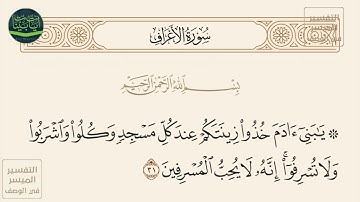 التفسير
الميسر
سُورَةُ الأَعْرَافِ
بِسْمِ اللَّهِ الرَّحْمَٰنِ الرَّحِيمِ
۞ يَٰبَنِىٓ ءَادَمَ خُذُوا۟ زِينَتَكُمْ عِندَ كُلِّ مَسْجِدٍ وَكُلُوا۟ وَٱشْرَبُوا۟
وَلَا تُسْرِفُوٓا۟ ۚ إِنَّهُۥ لَا يُحِبُّ ٱلْمُسْرِفِينَ ٣١
التفسير
الميسر
في الوصف